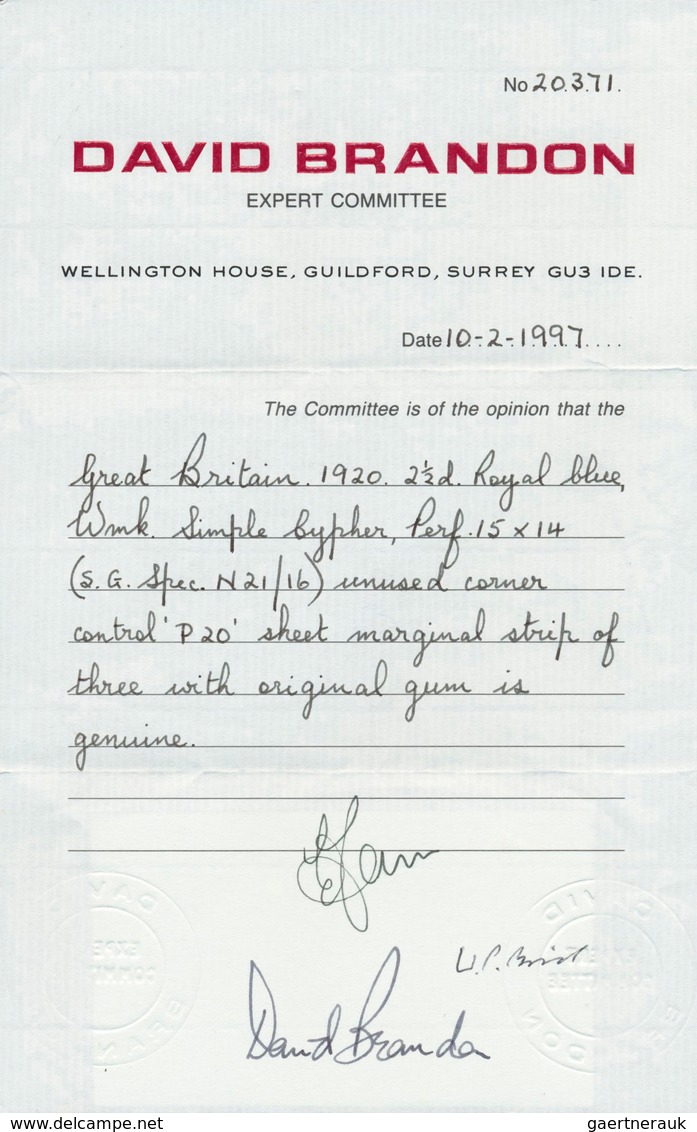 No 20371.
DAVID BRANDON
EXPERT COMMITTEE
WELLINGTON HOUSE, GUILDFORD, SURREY GU3 1DE.
Date 10-2-1997....
The Committee is of the opinion that the
Great Britain. 1920. 2½d. Royal blue,
Wmk. Simple Cypher, Perf. 15 x 14
(S.G. Spec. N21/16) unused corner
control 'P20' sheet marginal strip of
three with original gum is
genuine.
David Brandon
www.delcampe.net
gaertnerauk